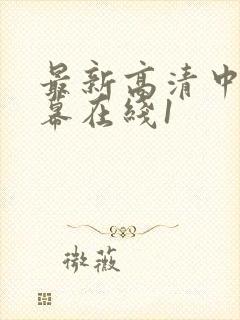 最新高清中
幕在线1
微薇